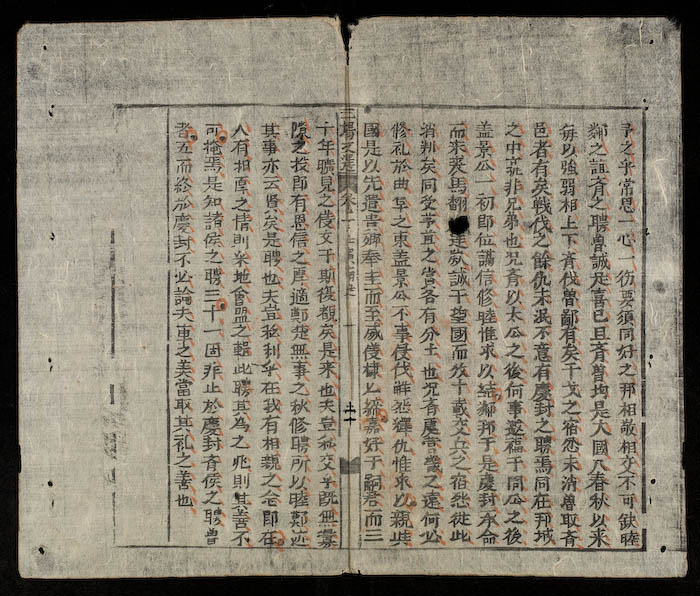 予之乎常思一心一彷要須同好之邦相敬相交不可缺睦
鄰之誼齊之聘魯誠足喜已且齊魯均是大國八春秋以來
每以強弱相上下齊伐魯鄙有矣干戈之宿怨未消魯取齊
邑者有矣戰伐之餘仇未泯不意有慶封之聘焉同在邦域
之中孰非兄弟也况齊以太公之後何事邀福于周公之後
盖景公一初即位講信修睦惟求以結鄰邦于是慶封奉命
而來裘馬翩 達欵誠于望國而数十載交兵之宿怨從此
消判矣同受茅宜之賞各有分土也况齊慶 歲之遠何必
修礼於曲阜之東盖景公不事侵伐解怨釋仇惟求以親与
國是以先遣貴卿奉圭而至威侵棣以締嘉好于嗣君而三
三場文選 卷一 二十
十年曠見之儀文于斯復覩矣是來也夫豈私交乎既無釁
隙之投即有恩信之厚適鄭楚無事之秋修聘所以睦鄰也
其事亦云善矣是聘也夫豈私利乎在我有相親之念即在
人有相厚之情則柴地會盟之輯此聘其為之兆則其善不
可掩焉是知諸侯之聘三十一固非止於慶封齊侯之聘魯
者五而終於慶封不必論夫車之美當取其礼之善也